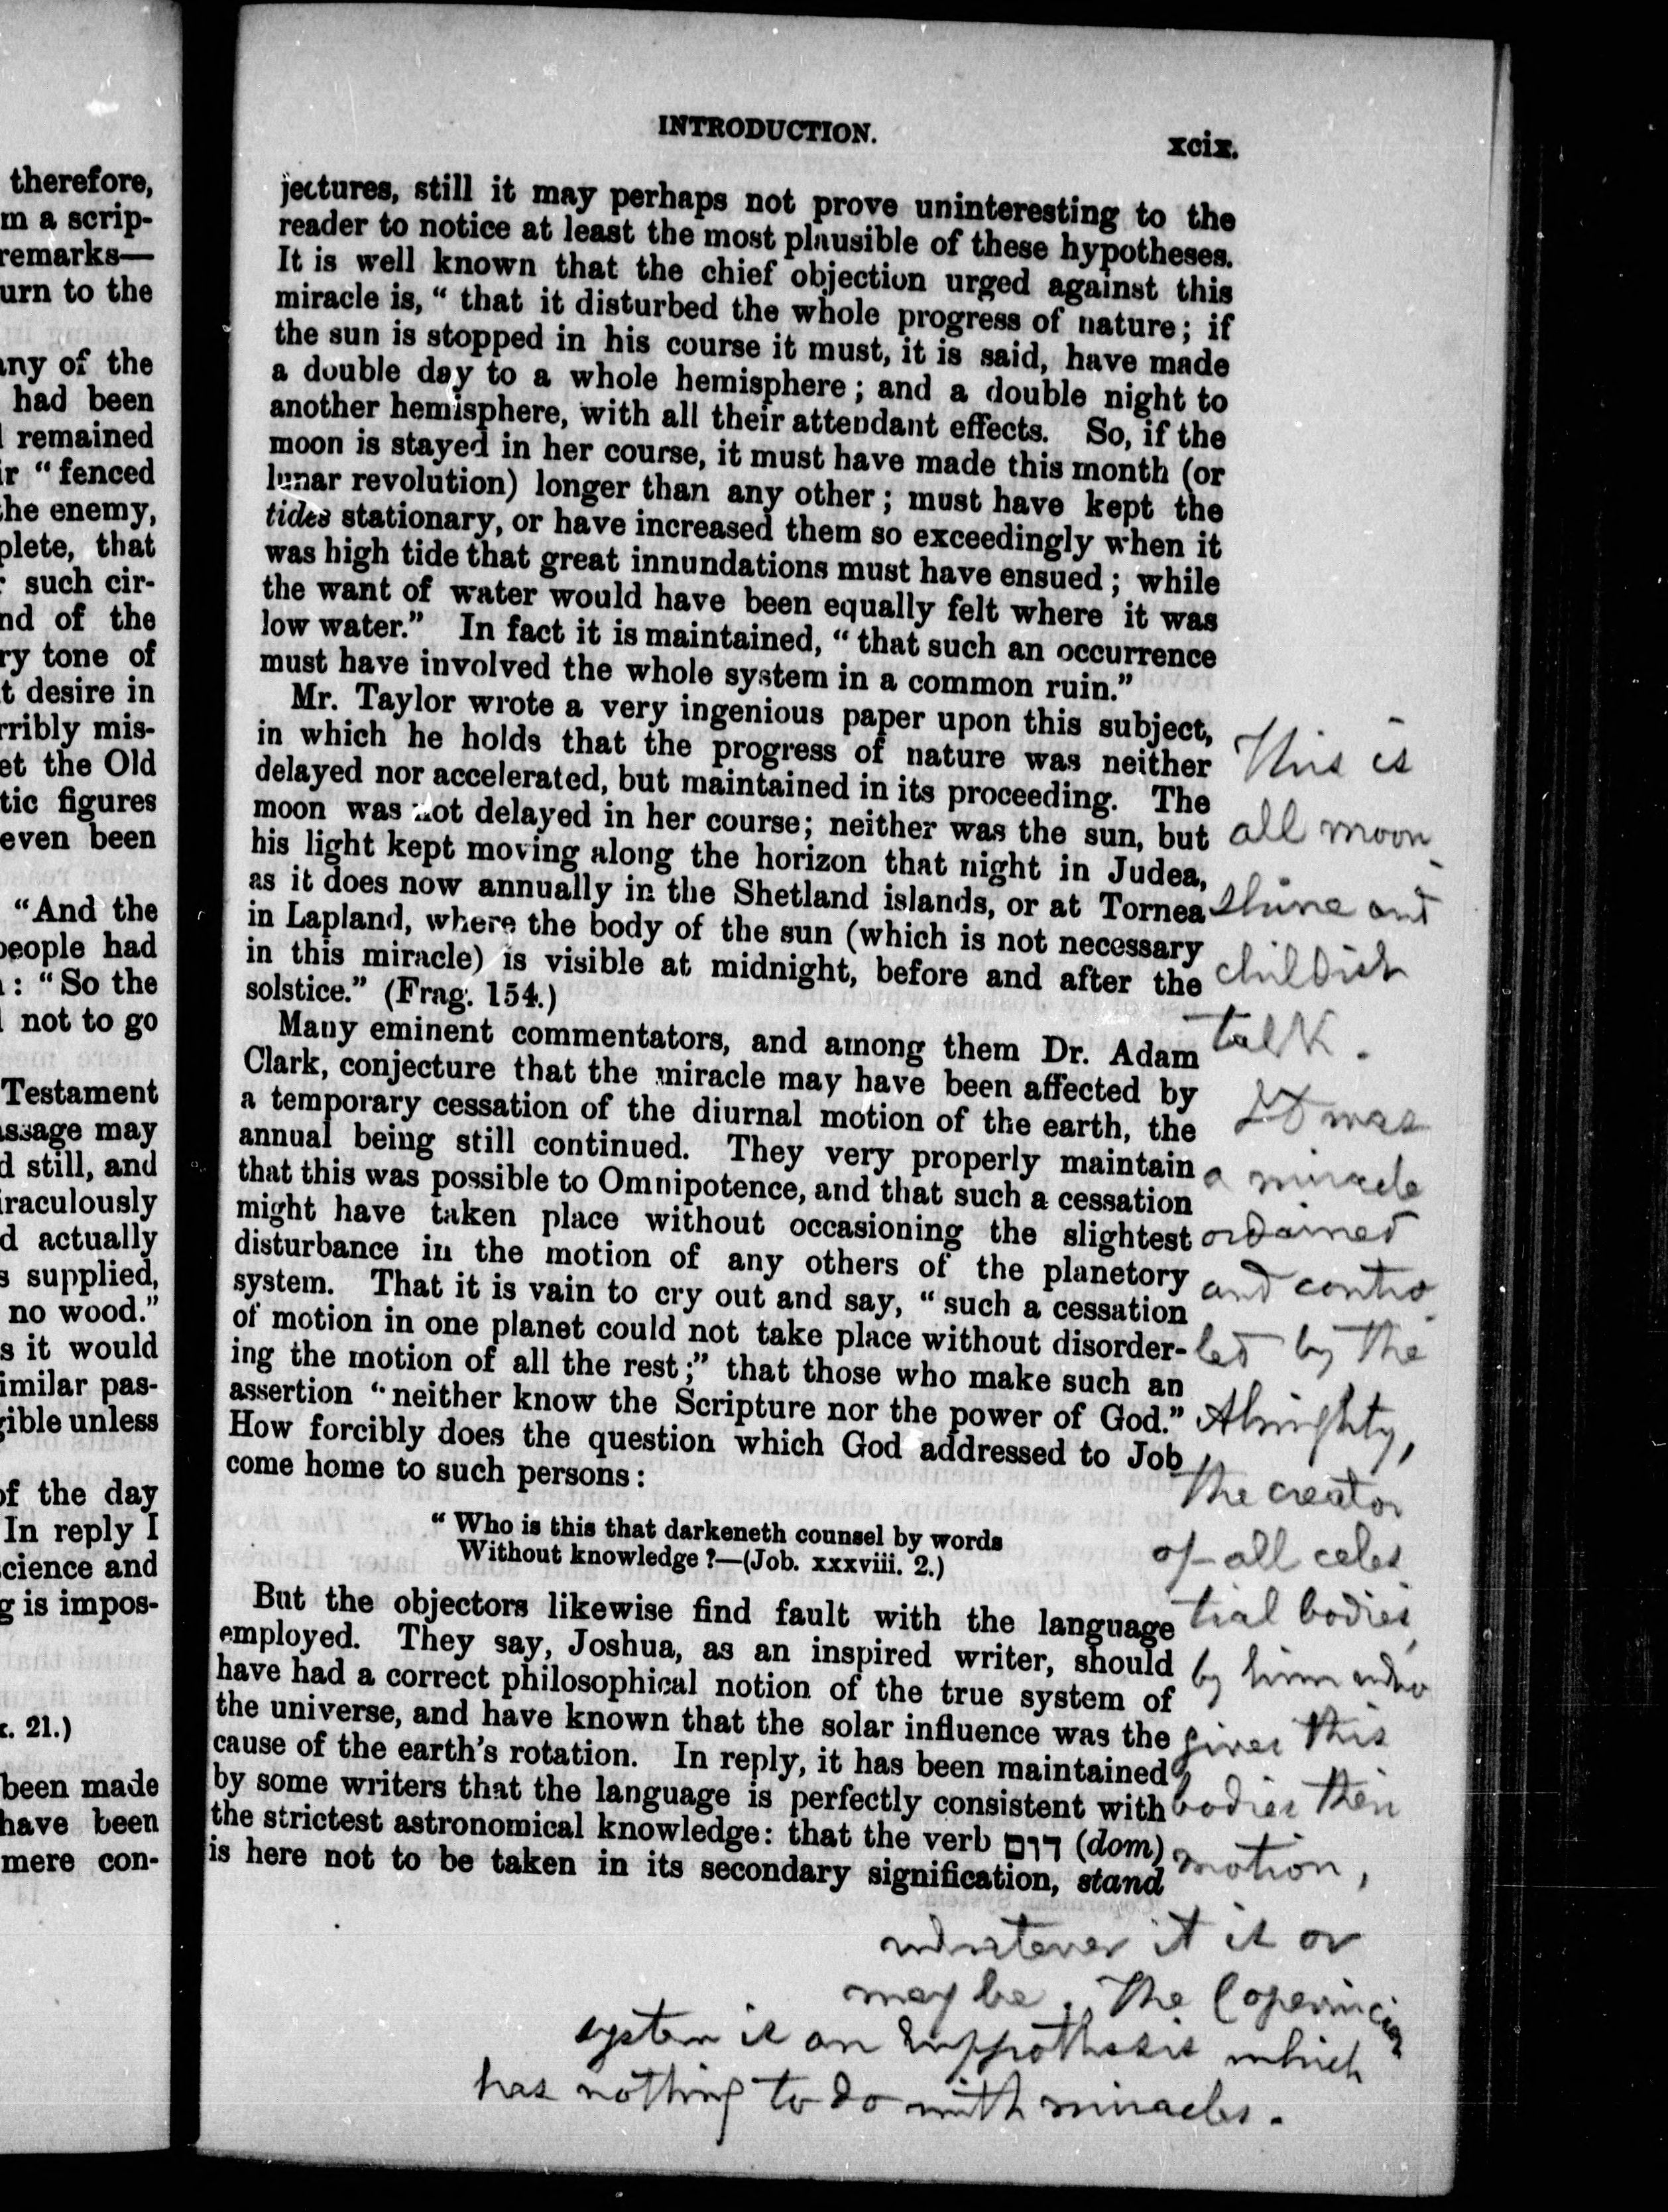 therefore,
m a scrip-
remarks—
urn to the
any of the
had been
remained
ir “fenced
the enemy,
plete, that
such cir-
nd of the
ry tone of
t desire in
rribly mis-
et the Old
tic figures
even been
“And the
people had
: “So the
not to go
Testament
assage may
d still, and
iraculously
d actually
s supplied,
no wood.”
s it would
imilar pas-
gible unless
of the day
In reply I
cience and
g is impos-
x. 21.)
been made
have been
mere con-
INTRODUCTION.
xcix.
jectures, still it may perhaps not prove uninteresting to the
reader to notice at least the most plausible of these hypotheses.
It is well known that the chief objection urged against this
miracle is, “ that it disturbed the whole progress of nature; if
the sun is stopped in his course it must, it is said, have made
a double day to a whole hemisphere; and a double night to
another hemisphere, with all their attendant effects. So, if the
moon is stayed in her course, it must have made this month (or
lunar revolution) longer than any other; must have kept the
tides stationary, or have increased them so exceedingly when it
was high tide that great innundations must have ensued; while
the want of water would have been equally felt where it was
low water.” In fact it is maintained, “ that such an occurrence
must have involved the whole system in a common ruin.”
Mr. Taylor wrote a very ingenious paper upon this subject,
in which he holds that the progress of nature was neither
delayed nor accelerated, but maintained in its proceeding. The
moon was not delayed in her course; neither was the sun, but
his light kept moving along the horizon that night in Judea,
as it does now annually in the Shetland islands, or at Tornea
in Lapland, where the body of the sun (which is not necessary
in this miracle) is visible at midnight, before and after the
solstice.” (Frag. 154.)
Many eminent commentators, and among them Dr. Adam
Clark, conjecture that the miracle may have been affected by
a temporary cessation of the diurnal motion of the earth, the
annual being still continued. They very properly maintain
that this was possible to Omnipotence, and that such a cessation
might have taken place without occasioning the slightest
disturbance in the motion of any others of the planetory
system. That it is vain to cry out and say, “ such a cessation
of motion in one planet could not take place without disorder-
ing the motion of all the rest;” that those who make such an
assertion “ neither know the Scripture nor the power of God.”
How forcibly does the question which God addressed to Job
come home to such persons:
“ Who is this that darkeneth counsel by words
Without knowledge ?—(Job. xxxviii. 2.)
But the objectors likewise find fault with the language
employed. They say, Joshua, as an inspired writer, should
have had a correct philosophical notion of the true system of
the universe, and have known that the solar influence was the
cause of the earth’s rotation. In reply, it has been maintained
by some writers that the language is perfectly consistent with
the strictest astronomical knowledge: that the verb דום (dom)
is here not to be taken in its secondary signification, stand
This is
all moon
shine and
childish
talk.
It was
a miracle
ordained
and contro
led by the
Almighty,
the creator
of all celes
tial bodies,
by him who
gives this
bodies their
motion,
whatever it is or
may be. The Copernician
system is an hyppothesis which
has nothing to do with miracles.